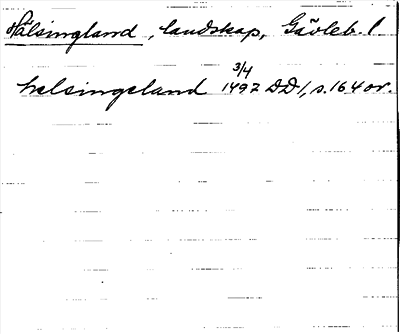 Hälsingland, landskap, Gävleb. l
helsingeland 3/4 1492 DD 1, s. 164 or.